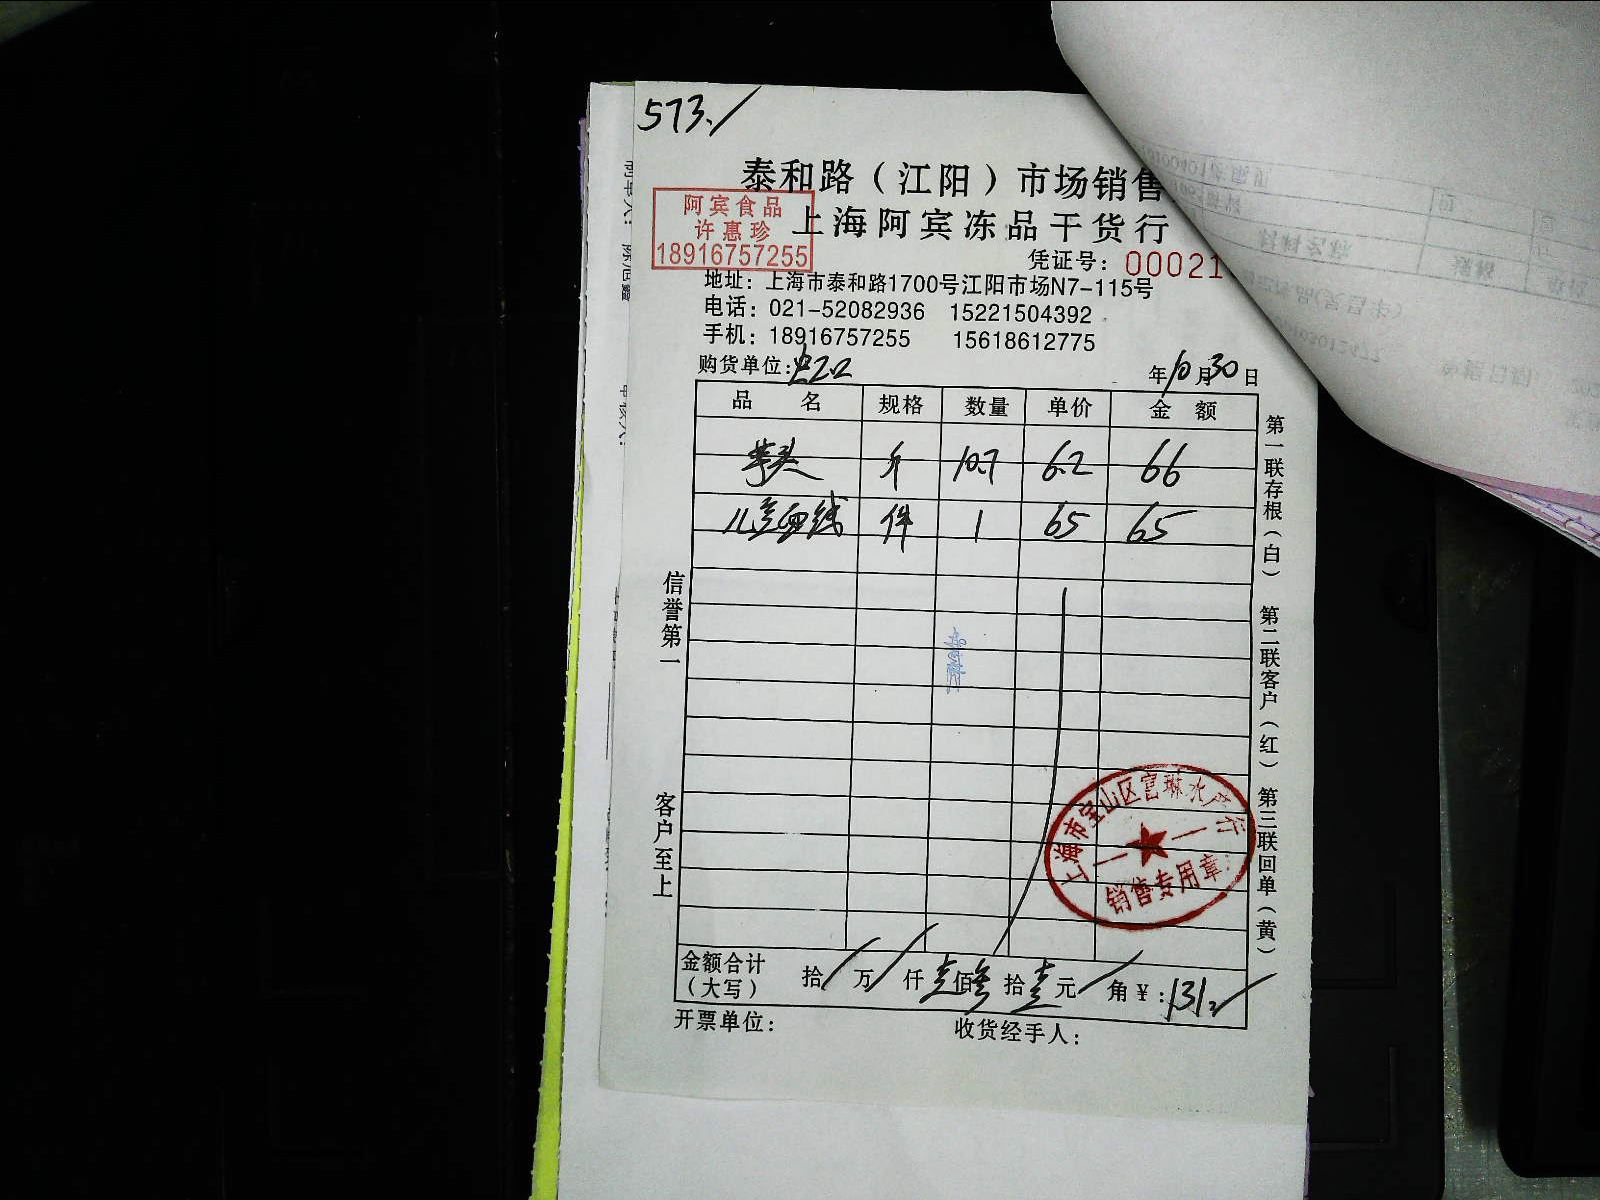 573.
泰和路（江阳）市场销售
上海阿宾冻品干货行
阿宾食品
许惠珍
18916757255
凭证号：00021
地址：上海市泰和路1700号江阳市场N7-115号
电话：021-52082936 15221504392
手机：18916757255 15618612775
购货单位： 年10月30日
品 名 规格 数量 单价 金 额
芋头 斤 10.7 6.2 66
儿童面线 件 1 65 65
信誉第一
客户至上
第一联存根（白） 第二联客户（红） 第三联回单（黄）
上海市宝山区富琳水产行
销售专用章
金额合计（大写） 拾 万 仟壹佰叁拾壹元 角￥：131
开票单位： 收货经手人：